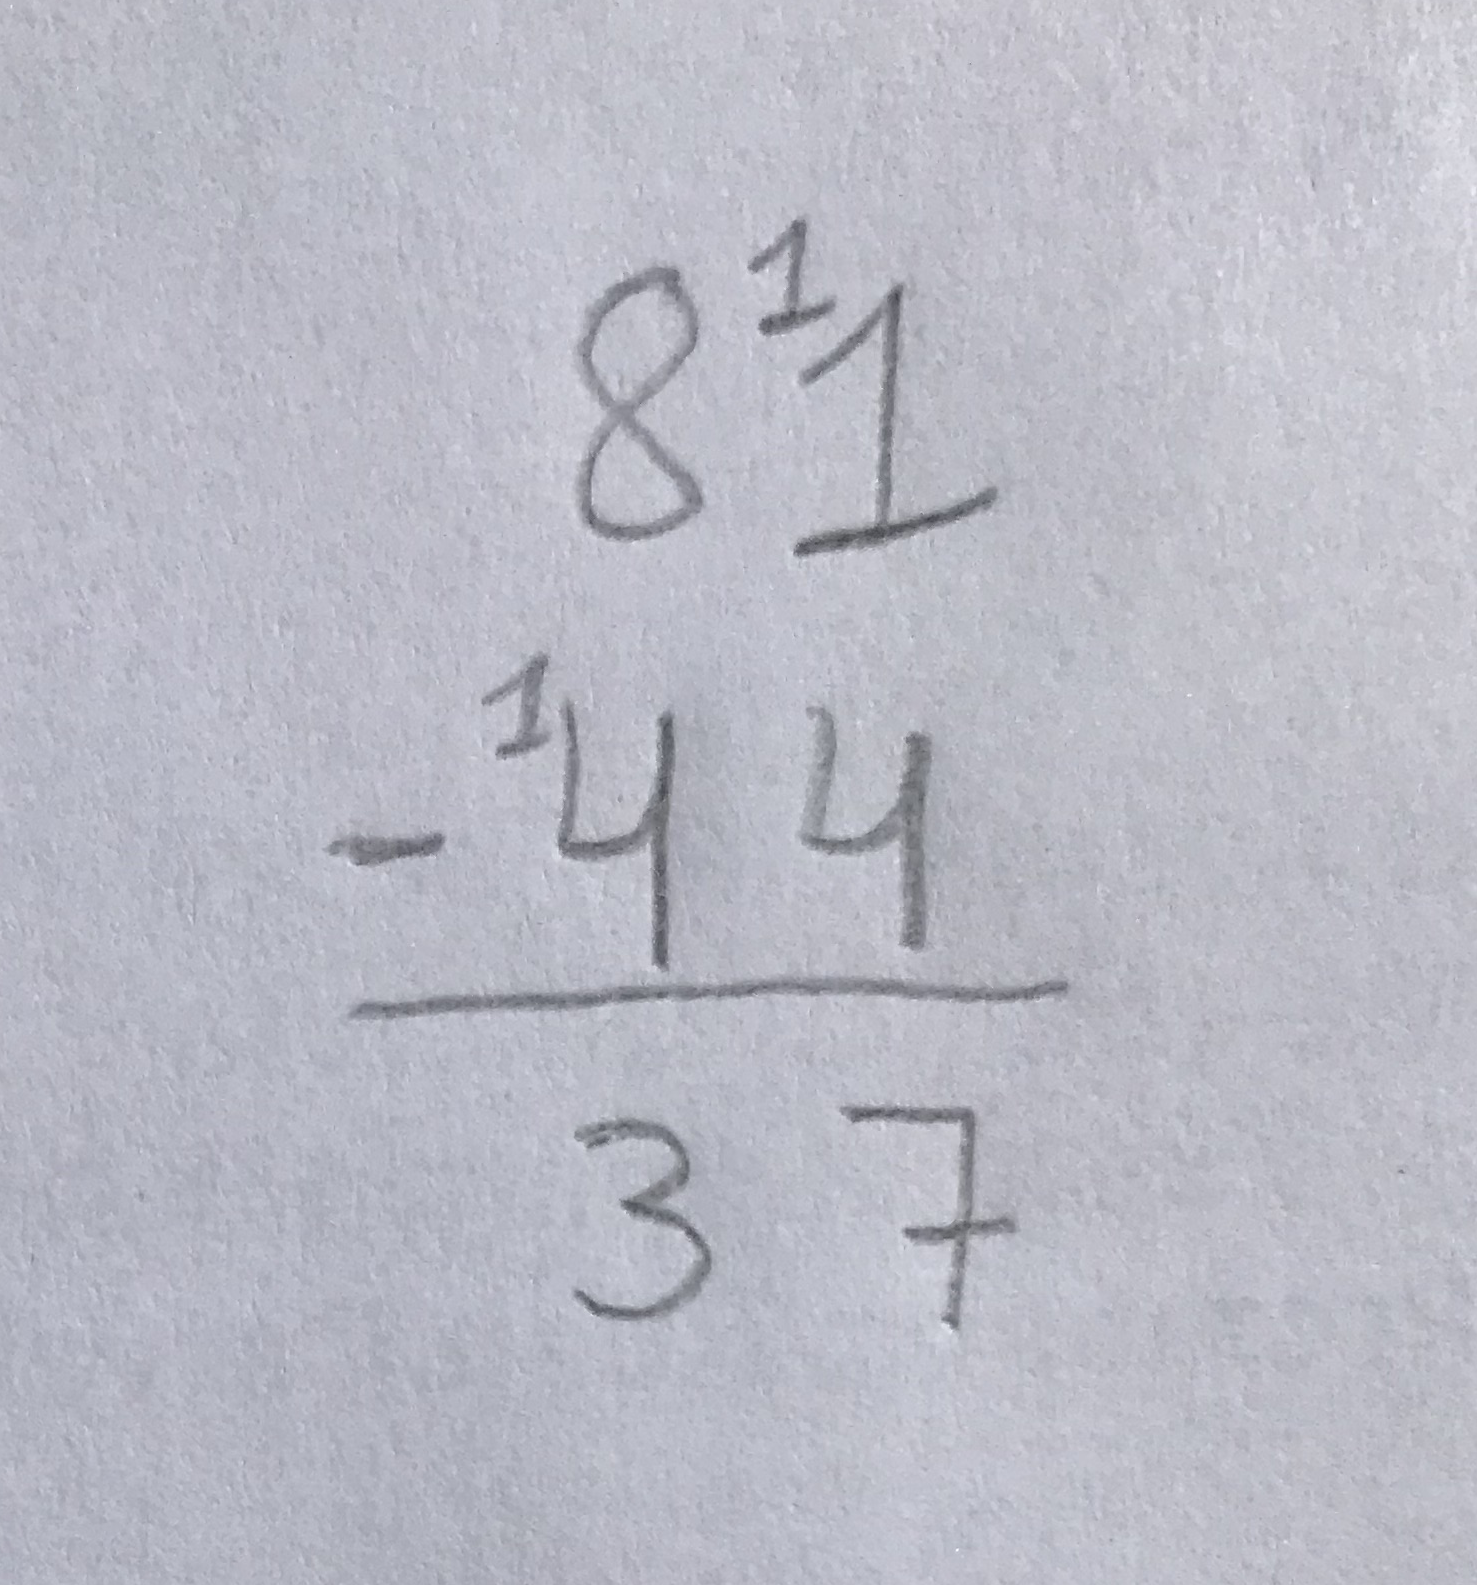 8¹1
- ¹4 4
3 7